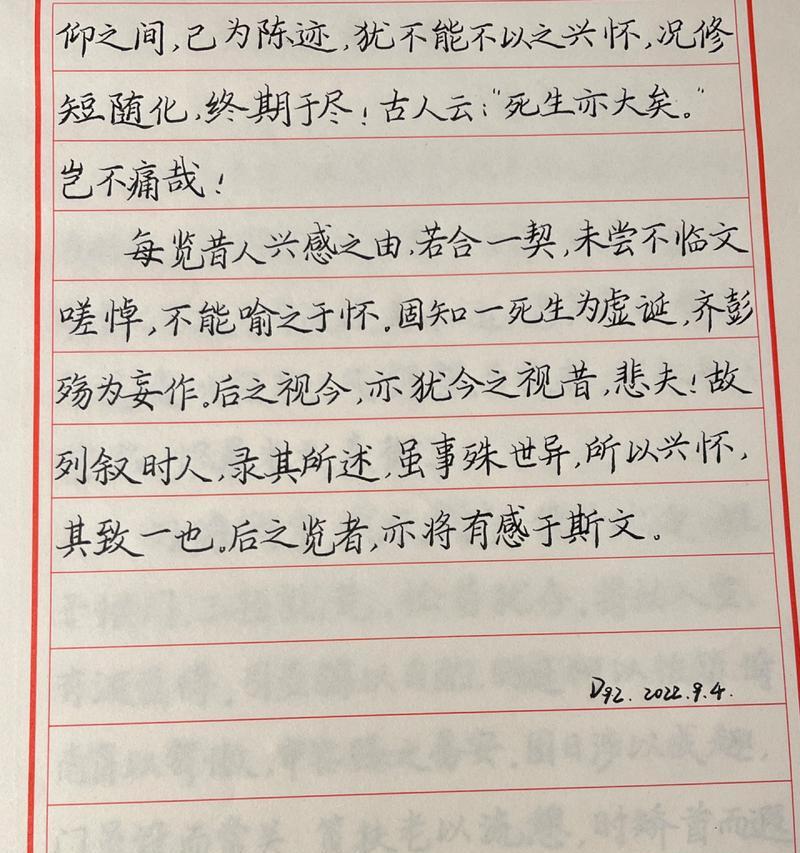 仰之间,已为陈迹,犹不能不以之兴怀,况修
短随化,终期于尽!古人云:“死生亦大矣。”
岂不痛哉!
每览昔人兴感之由,若合一契,未尝不临文
嗟悼,不能喻之于怀。固知一死生为虚诞,齐彭
殇为妄作。后之视今,亦犹今之视昔,悲夫!故
列叙时人,录其所述,虽事殊世异,所以兴怀,
其致一也。后之览者,亦将有感于斯文。
D92. 2022.9.4.